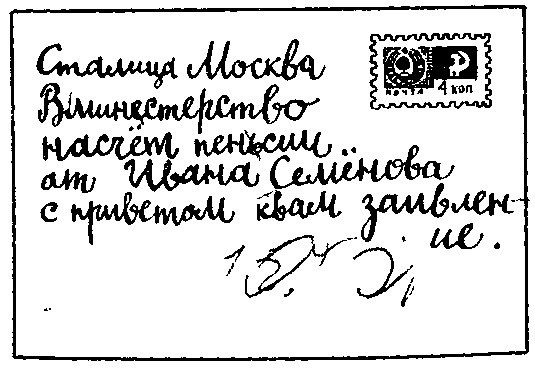 Сталица Москва
Вминестерство
насчёт пенъсии
от Ивана Семёнова
с приветом квам заивлен-
ие.
почта
4 коп